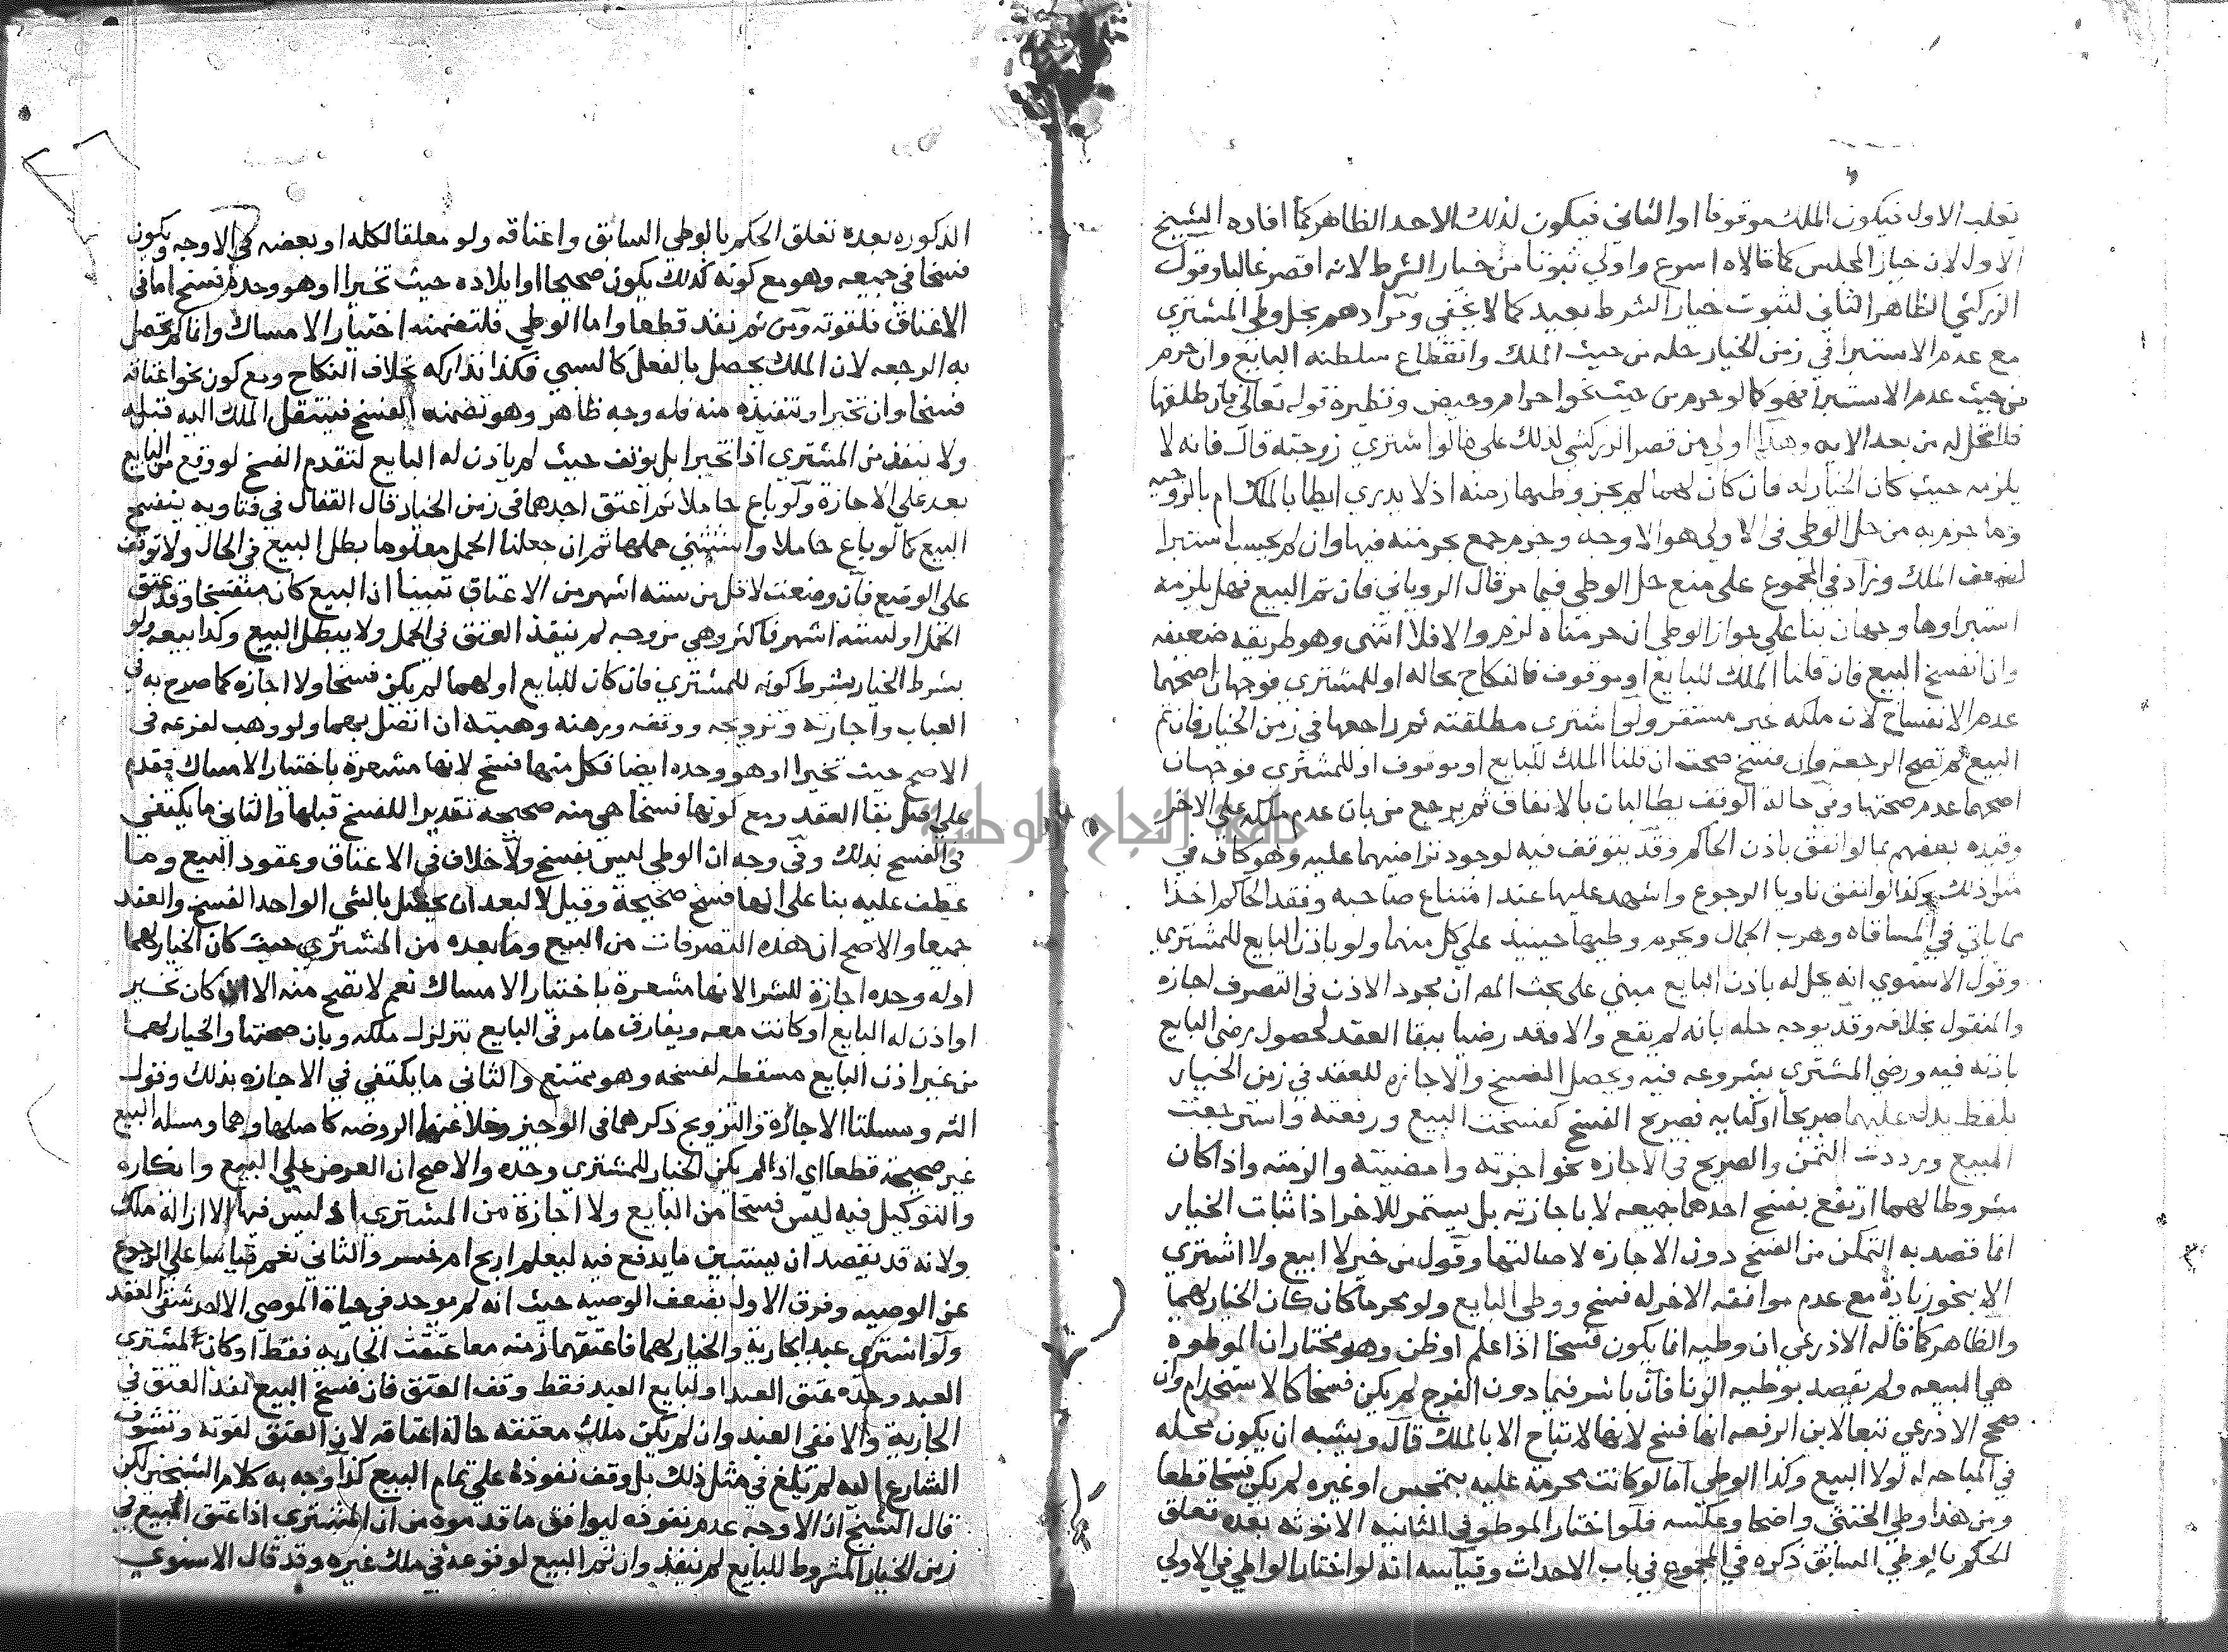 يغلب الاول فيكون الملك موقوفا او الثاني فيكون لذلك الاحد الظاهر كما افاده الشيخ
الاول لان خيار المجلس كما قالاه اسرع واولي ثبوتا من خيار الشرط لانه اقصر غالبا وقول
الزركشي الظاهر الثاني لثبوت خيار الشرط بعيد كما لا يخفي ومرادهم بحل وطي المشتري
مع عدم الاستبرا في زمن الخيار حله من حيث الملك وانقطاع سلطنة البايع وان حرم
من حيث عدم الاستبرا فهو كما لو حرم من حيث نحو احرام وحيض ونظيره قوله تعالي فان طلقها
فلا تحل له من بعد الايه وهذا اولي من قصر الزركشي لذلك علي ما لو اشتري زوجته قال فانه لا
يلزمه حيث كان الخيار له فان كان لهما لم يجز وطيها زمنه اذ لا يدري ايطا بالملك ام بالزوجيه
وما جزم به من حل الوطي في الاولي هو الاوجه وجزم جمع بحرمته فيها وان لم يجب استبرا
لضعف الملك وزاد في المجموع علي منع حل الوطي فيما مر قال الروياني فان تم البيع فهل يلزمه
استبراوها وجهان بنا علي جواز الوطي ان حرمناه لزم والا فلا انتهي وهو طريقه ضعيفه
وان انفسخ البيع فان قلنا الملك للبايع او موقوف فالنكاح بحاله او للمشتري فوجهان اصحهما
عدم الانفساخ لان ملكه غير مستقر ولو اشتري مطلقته ثم راجعها في زمن الخيار فان تم
البيع لم تصح الرجعه وان فسخ صحت ان قلنا الملك للبايع او موقوف او للمشتري فوجهان
اصحهما عدم صحتها وفي حالة الوقف يطالبان بالانفاق ثم يرجع من بان عدم ملكه علي الاخر
وقيده بعضهم بما لو انفق باذن الحاكم وقد يتوقف فيه لوجود تراضيهما عليه وهو كاف في
مثل ذلك وكذا لو انفق ناويا الرجوع واشهد عليها عند امتناع صاحبه وفقد الحاكم اخذا
مما ياتي في المساقاه وهرب الجمال ويحرم وطيها حينيذ علي كل منهما ولو باذن البايع للمشتري
وقول الاسنوي انه يحل له باذن البايع مبني علي بحث المص ان مجرد الاذن في التصرف اجازه
والمنقول بخلافه وقد يوجه حله بانه لم يقع والا فقد رضيا ببقا العقد لحصول رضي البايع
باذنه فيه ورضي المشتري بشروعه فيه ويحصل الفسخ والاجازه للعقد في زمن الخيار
بلفظ يدل عليهما صريحا او كنايه فصريح الفسخ كفسخت البيع ورفعته واسترجعت
المبيع ورددت الثمن والصريح في الاجازه نحو اجزته وامضيته والزمته واذا كان
مشروطا لهما ارتفع بفسخ احدهما جميعه لا باجازته بل يستمر للاخر اذ اثبات الخيار
انما قصد به التمكن من الفسخ دون الاجازه لاصالتها وقول من خير لا ابيع ولا اشتري
الا بنحو زيادة مع عدم موافقه الاخر له فسخ ووطي البايع ولو محرما كان كان الخيار لهما
والظاهر كما قاله الاذرعي ان وطيه انما يكون فسخا اذا علم او ظن وهو مختار ان الموطوه
هي المبيعه ولم يقصد بوطيه الزنا فان باشر فيما دون الفرج لم يكن فسخا كالاستخدام وان
صحح الاذرعي تبعا لابن الرفعه انها فسخ لانها لا تباح الا بالملك قال ويشبه ان يكون محله
في المباحه له لولا البيع وكذا الوطي اما لو كانت محرمة عليه بتمجس او غيره لم يكن فسخا قطعا
ومن هذا وطي الخنثي واضحا وعكسه فلو اختار الموطو في الثانيه الانوثه بعده تعلق
الحكم بالوطي السابق ذكره في المجموع في باب الاحداث وقياسه انه لو اختار الواطي في الاولي
الذكوره بعده تعلق الحكم بالوطي السابق واعتاقه ولو معلقا لكله او بعضه في الاوجه ويكون
فسخا في جميعه وهو مع كونه كذلك يكون صحيحا او ايلاده حيث تخيرا او هو وحده فسخ اما في
الاعتاق فلقوته ومن ثم نفذ قطعا واما الوطي فلتضمنه اختيار الامساك وانما لم تحصل
به الرجعه لان الملك يحصل بالفعل كالسبي فكذا تداركه بخلاف النكاح ومع كون نحو اعتاقه
فسخا وان تخيرا وتنفيذه منه فله وجه ظاهر وهو تضمنه الفسخ فينتقل الملك اليه قبله
ولا ينفذ من المشتري اذا تخيرا بل يوقف حيث لم ياذن له البايع لتقدم الفسخ لو وقع من البايع
بعد علي الاجازة ولو باع حاملا ثم اعتق احدهما في زمن الخيار قال القفال في فتاويه ينفسخ
البيع كما لو باع حاملا واستثني حملها ثم ان جعلنا الحمل معلوما بطل البيع في الحال ولا توقف
علي الوضع فان وضعت لاقل من سته اشهر من الاعتاق تبينا ان البيع كان منفسخا وقد عتق
الحمل او لسته اشهر فاكثر وهي مزوجه لم ينفذ العتق في الحمل ولا يبطل البيع وكذا بيعه ولو
بشرط الخيار بشرط كونه للمشتري فان كان للبايع او لهما لم يكن فسخا ولا اجازه كما صرح به في
العباب واجارته وتزويجه ووقفه ورهنه وهبته ان اتصل بهما ولو وهب لفرعه في
الاصح حيث تخيرا او هو وحده ايضا فكل منها فسخ لانها مشعرة باختيار الامساك فقدم
علي اصل بقا العقد ومع كونها فسخا هي منه صحيحه تقديرا للفسخ قبلها والثاني ما يكتفي
في الفسخ بذلك وفي وجه ان الوطي ليس بفسخ ولا خلاف في الاعتاق وعقود البيع وما
عطف عليه بنا علي انها فسخ صحيحة وقيل لا لبعد ان يحصل بالشي الواحد الفسخ والعقد
جميعا والاصح ان هذه التصرفات من البيع وما بعده من المشتري حيث كان الخيار لهما
او له وحده اجازة للشرا لانها مشعرة باختيار الامساك نعم لا تصح منه الا ان كان تخير
او اذن له البايع او كانت معه ويفارق ما مر في البايع بتزلزل ملكه وبان صحتها والخيار لهما
من غير اذن البايع مسقطه لفسخه وهو ممتنع والثاني ما يكتفي في الاجازه بذلك وقول
الشه ومسلتا الاجارة والتزويج ذكرهما في الوجيز وخلا عنهما الروضه كاصلها وهما ومسله البيع
غير صحيحة قطعا اي اذا لم يكن الخيار للمشتري وحده والاصح ان العرض علي البيع وانكاره
والتوكيل فيه ليس فسخا من البايع ولا اجازة من المشتري اذ ليس فيها الا ازالة ملك
ولانه قد يقصد ان يستبين ما يدفع فيه ليعلم اربح ام خسر والثاني نعم قياسا علي الرجوع
عن الوصيه وفرق الاول بضعف الوصيه حيث انه لم يوجد في حياة الموصي الا احد شقي العقد
ولو اشتري عبدا بجارية والخيار لهما فاعتقهما زمنه معا عتقت الجاريه فقط او كان للمشتري
العبد وحده عتق العبد او لبايع العبد فقط وقف العتق فان فسخ البيع نفذ العتق في
الجارية والا ففي العبد وان لم يكن ملك معتقه حالة اعتاقه لان العتق لقوته وتشوف
الشارع اليه لم تلغ في مثل ذلك بل وقف نفوذه علي تمام البيع كذا وجه به كلام الشيخين لكن
قال الشيخ ان الاوجه عدم نفوذه ليوافق ما قدموه من ان المشتري اذا عتق المبيع في
زمن الخيار المشروط للبايع لم ينفذ وان تم البيع لوقوعه في ملك غيره وقد قال الاسنوي
جامعة النجاح الوطنية